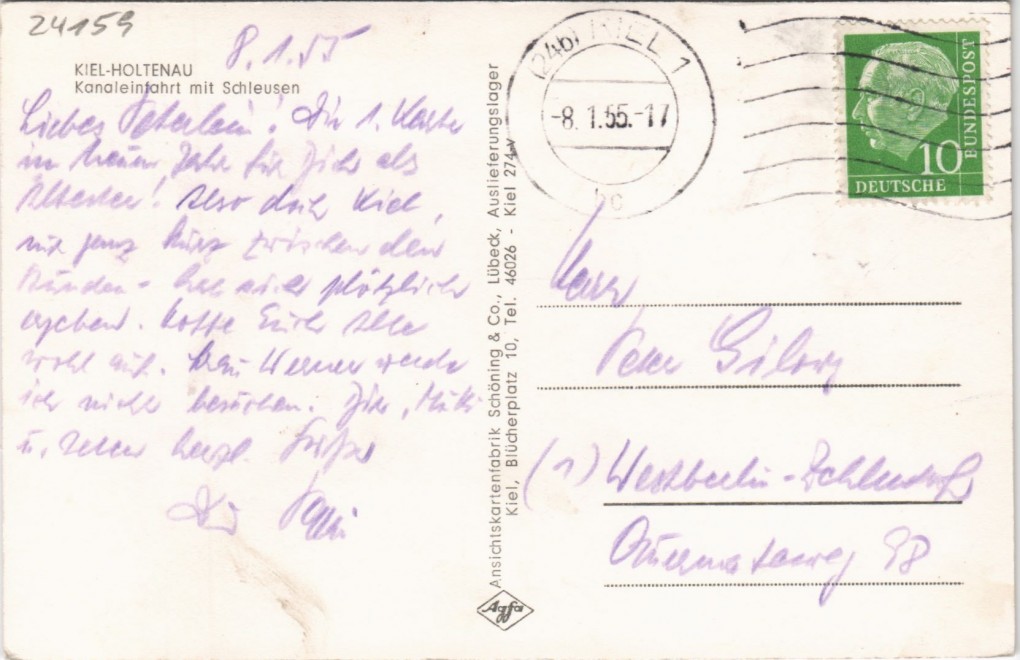 24159
8.1.55
KIEL-HOLTENAU
Kanaleinfahrt mit Schleusen
Liebes Peterlein! Die 1. Karte
im neuen Jahr für Dich als
Ältesten! Also doch Kiel,
nur ganz kurz zwischen den
Stunden - hat sich plötzlich
ergeben. Hoffe Euch alle
wohl auf. Frau Werner werde
ich nicht besuchen. Dir, Mutti
u. allen herzl. Grüße
Dein Pappi
Ansichtskartenfabrik Schöning & Co., Lübeck, Auslieferungslager
Kiel, Blücherplatz 10, Tel. 46026 - Kiel 274 v
Agfa
(24b) KIEL 1
-8.1.55.-17
bc
10
DEUTSCHE
BUNDESPOST
Herrn
Peter
(1) Westberlin-Zehlendorf
98